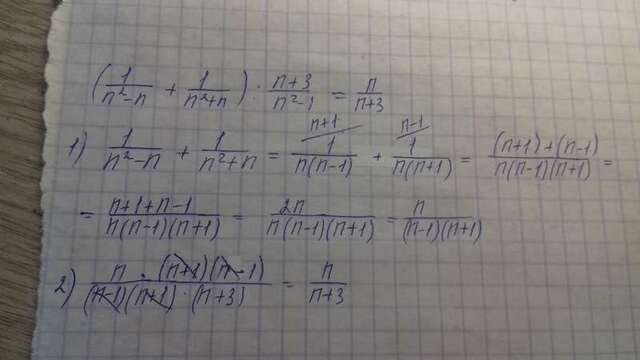 (1/(n²-n) + 1/(n²+n)) : (n+3)/(n²-1) = n/(n+3)
1) 1/(n²-n) + 1/(n²+n) = 1/(n(n-1)) ^(n+1) + 1/(n(n+1)) ^(n-1) = ((n+1)+(n-1))/(n(n-1)(n+1)) =
= (n+1+n-1)/(n(n-1)(n+1)) = 2n/(n(n-1)(n+1)) = n/((n-1)(n+1))
2) n·(n+1)(n-1)/((n-1)(n+1)·(n+3)) = n/(n+3)